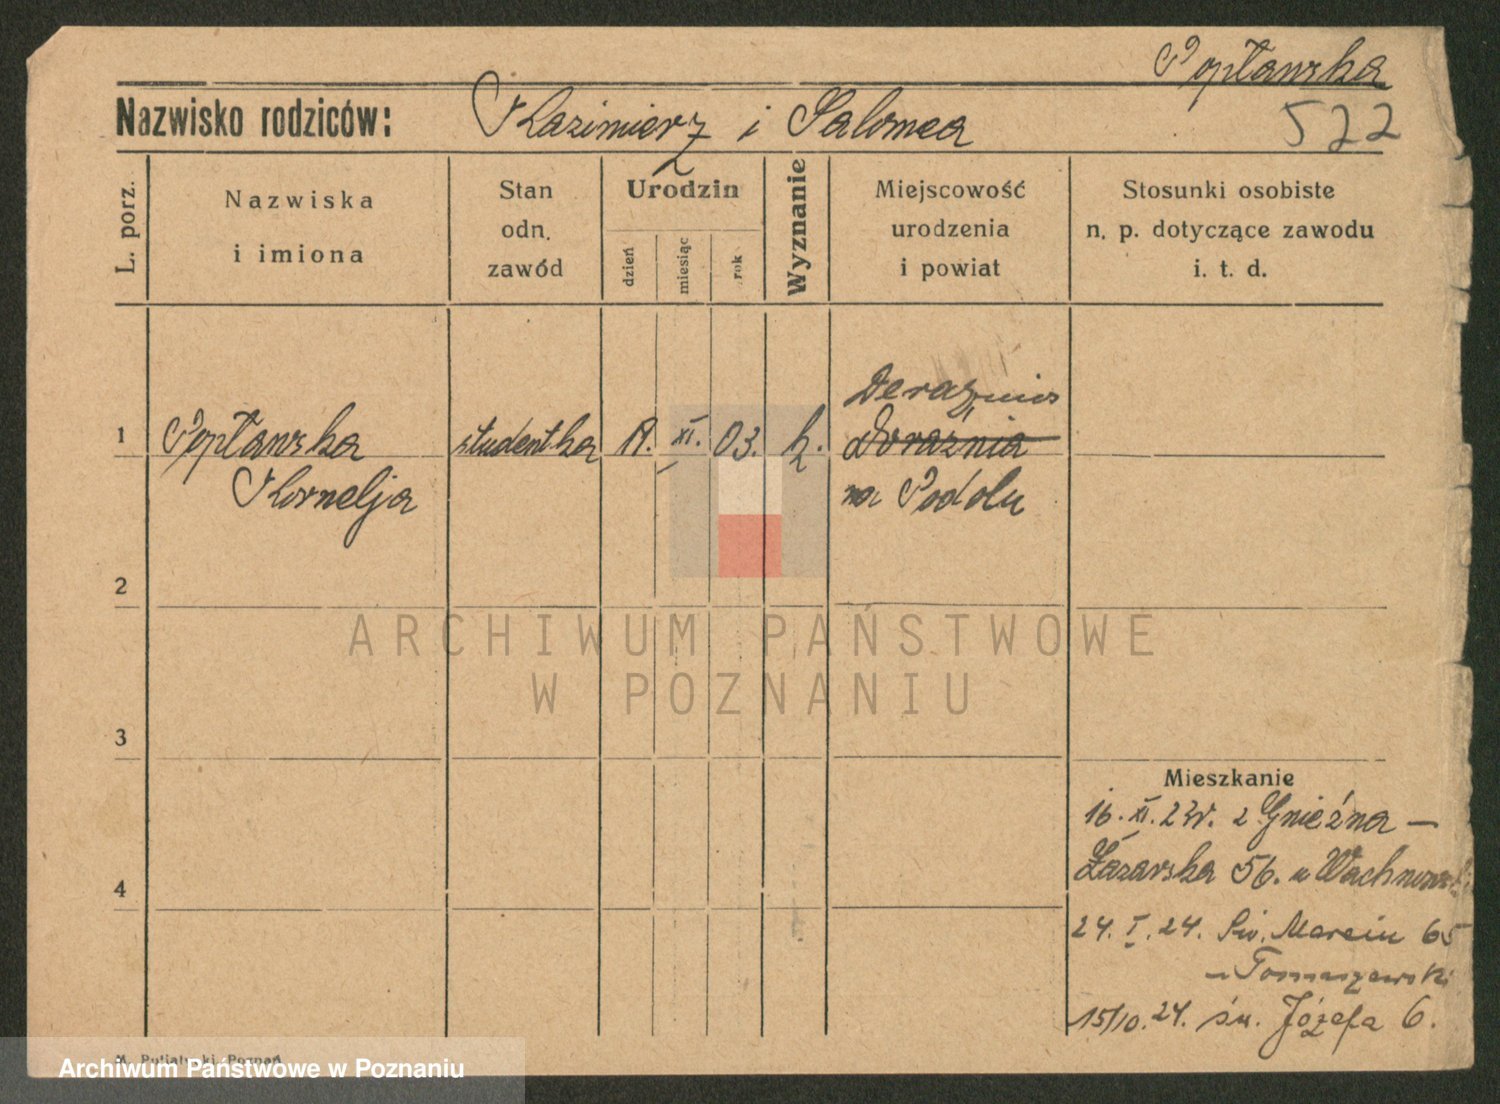 Popławska
Nazwisko rodziców: Kazimierz i Salomea
522
L. porz.
Nazwiska
i imiona
Stan
odn.
zawód
Urodzin
dzień
miesiąc
rok
Wyznanie
Miejscowość
urodzenia
i powiat
Stosunki osobiste
n. p. dotyczące zawodu
i. t. d.
Deraznia
1 Popławska studentka XI. 03. k. Doraznia
Kornelja na Podolu
2
ARCHIWUM PAŃSTWOWE
W POZNANIU
3
Mieszkanie
16. XI. 23r. z Gnieźna —
4 Łazarska 56. u Wachnowski
24. I. 24. Św. Marcin 65
u Tomaszewski
15/10. 24. św. Józefa 6.
Poznań
Archiwum Państwowe w Poznaniu